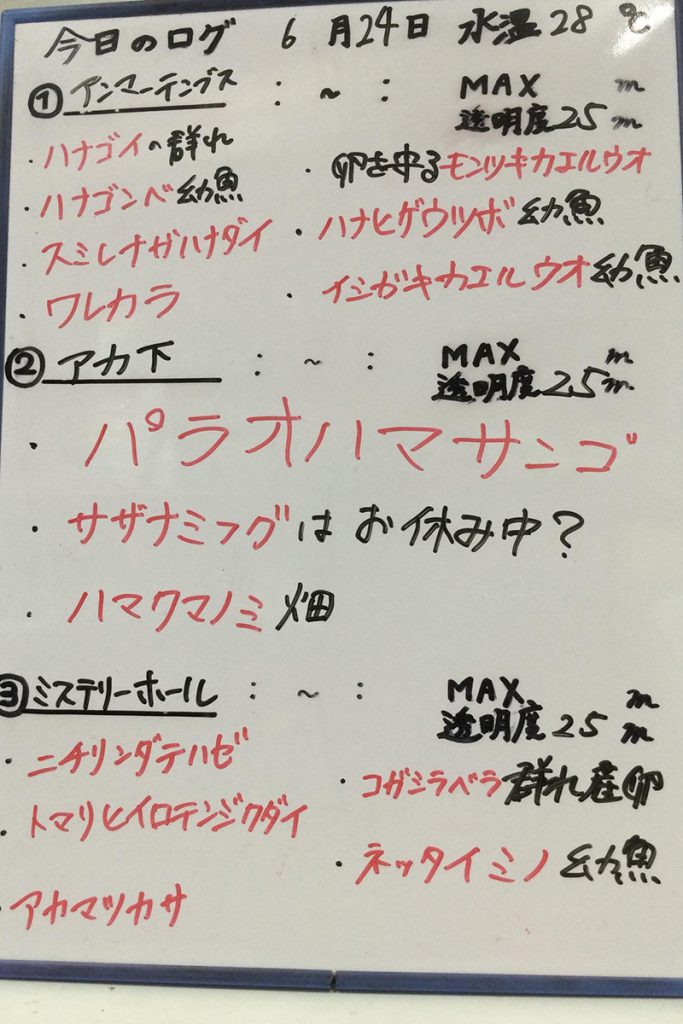 今日のログ 6月24日 水温28℃
①アンマーテングス : ~ : MAX m
透明度25m
・ハナゴイの群れ
・ハナゴンベ幼魚
・スミレナガハナダイ
・ワレカラ
・卵を守るモンツキカエルウオ
・ハナヒゲウツボ幼魚
・イシガキカエルウオ幼魚
②アカ下 : ~ : MAX m
透明度25m
・パラオハマサンゴ
・サザナミフグはお休み中?
・ハマクマノミ畑
③ミステリーホール : ~ : MAX m
透明度25m
・ニチリンダテハゼ
・トマリヒイロテンジクダイ
・アカマツカサ
・コガシラベラ群れ産卵
・ネッタイミノ幼魚